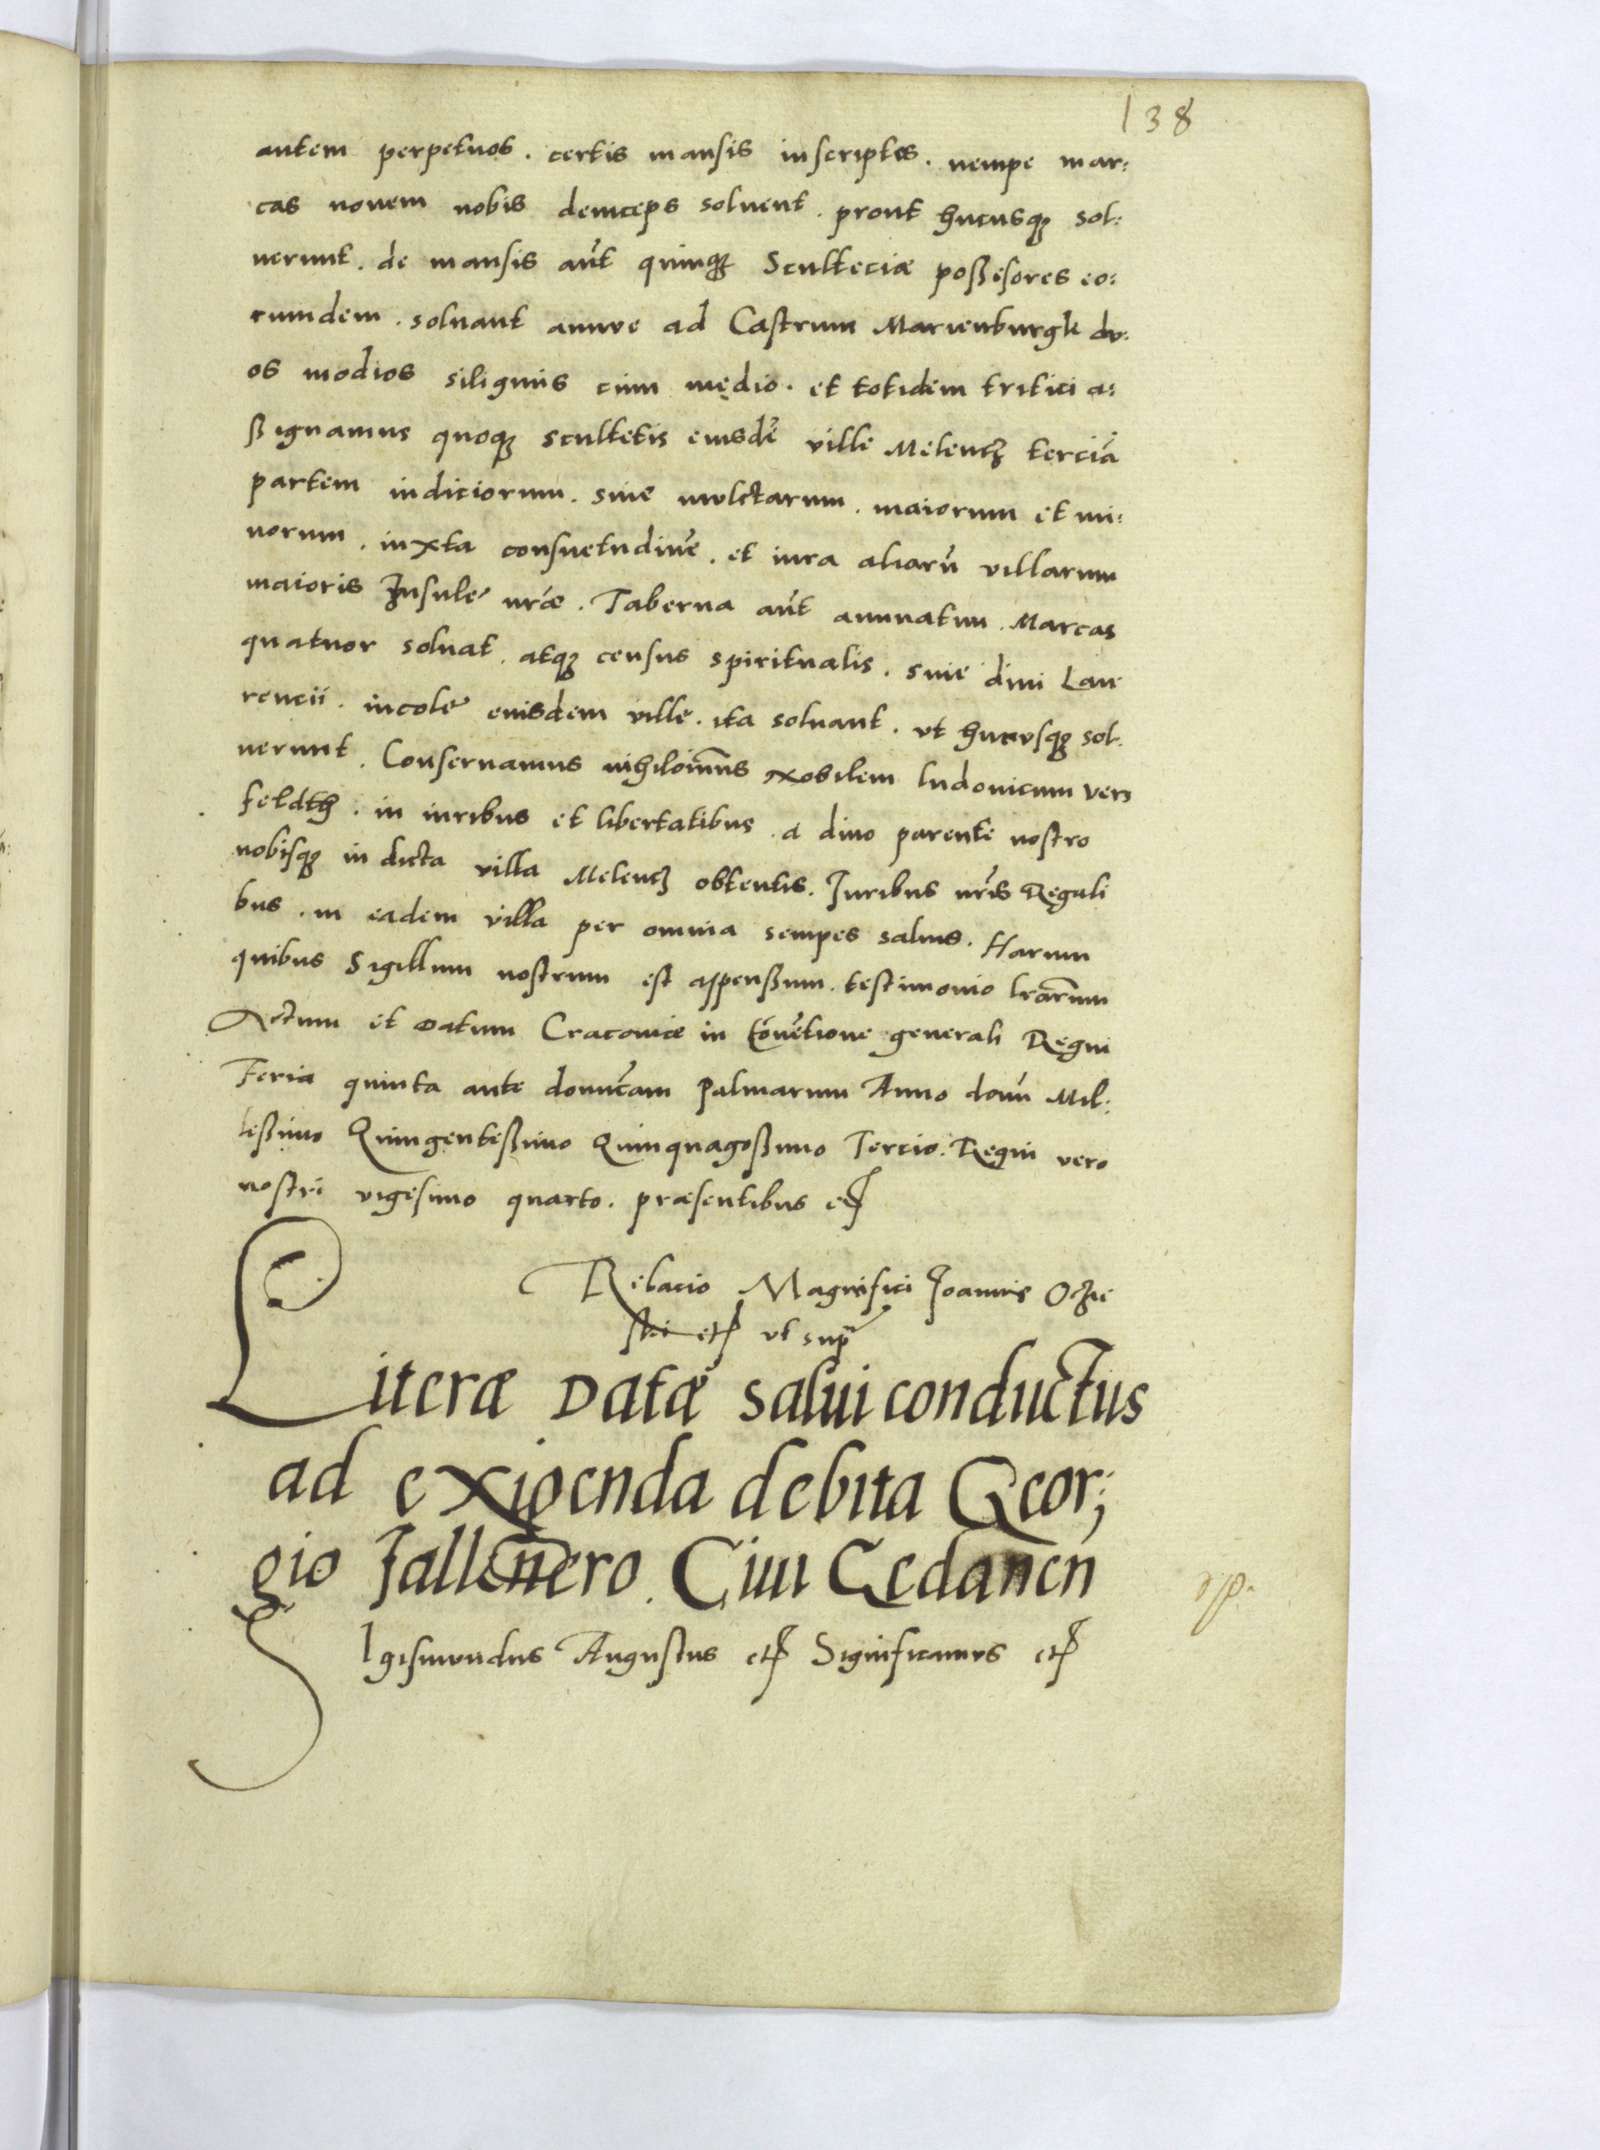 138
autem perpetuos. certis mansis inscriptos. nempe mar:
cas novem nobis deinceps solvent. prout hucusqꝫ sol:
verunt. de mansis aūt quinqꝫ Scultetiæ poßesores eo:
rumdem. solvant annue ad Castrum Marienburgk du:
os modios siliginis cum medio. et totidem tritici a:
ßignamus quoqꝫ scultetis eiusdē ville Melentz terciā
partem iudiciorum. sive mulctarum. maiorum et mi:
norum. iuxta consuetudinē. et iura aliarū villarum
maioris Insule nr̃æ. Taberna aūt annuatim. Marcas
quatuor solvat. atqꝫ census spiritualis. sive divi Lau
rencii. incole eiusdem ville. ita solvant. ut hucusqꝫ sol:
verunt. Conservamus nihilominus Nobilem ludovicum vers
feldth. in iuribus et libertatibus. a divo parente nostro
nobisqꝫ in dicta villa Melentz obtentis. Juribus nr̃is Regali
bus. in eadem villa per omnia semper salvis. Harum
quibus Sigillum nostrum est appensum. testimonio lrarum
Actum et Datum Cracoviæ in Cōvētione generali Regni
Feria quinta ante domīcam Palmarum Anno domī Mil:
leßimo Quingenteßimo Quinquageßimo Tercio. Regni vero
nostri vigesimo quarto. præsentibus etc
Relacio Magnifici Joannis Oczie
ski etc ut supͣ
Literæ Datæ salui conductus
ad exigenda debita Geor;
gio Jallenero. Ciui Gedanen̄
SIgismundus Augustus etc Significamus etc